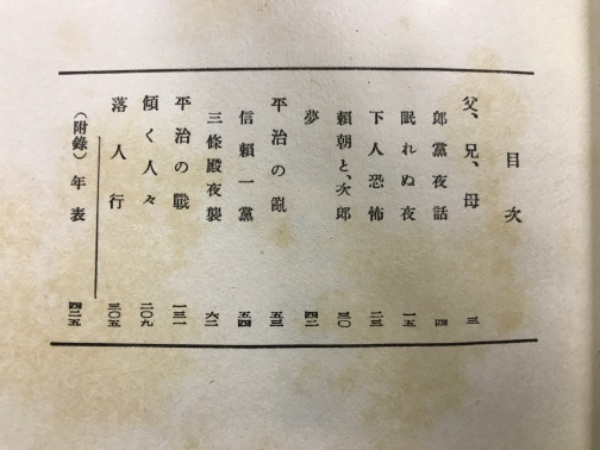 目次
父、兄、母 三
郎黨夜話 四
眠れぬ夜 一五
下人恐怖 二三
賴朝と、次郎 三〇
夢 四二
平治の亂 五三
信賴一黨 五四
三條殿夜襲 六二
平治の戰 一三一
傾く人々 二〇九
落人行 三〇五
(附錄)年表 四二五